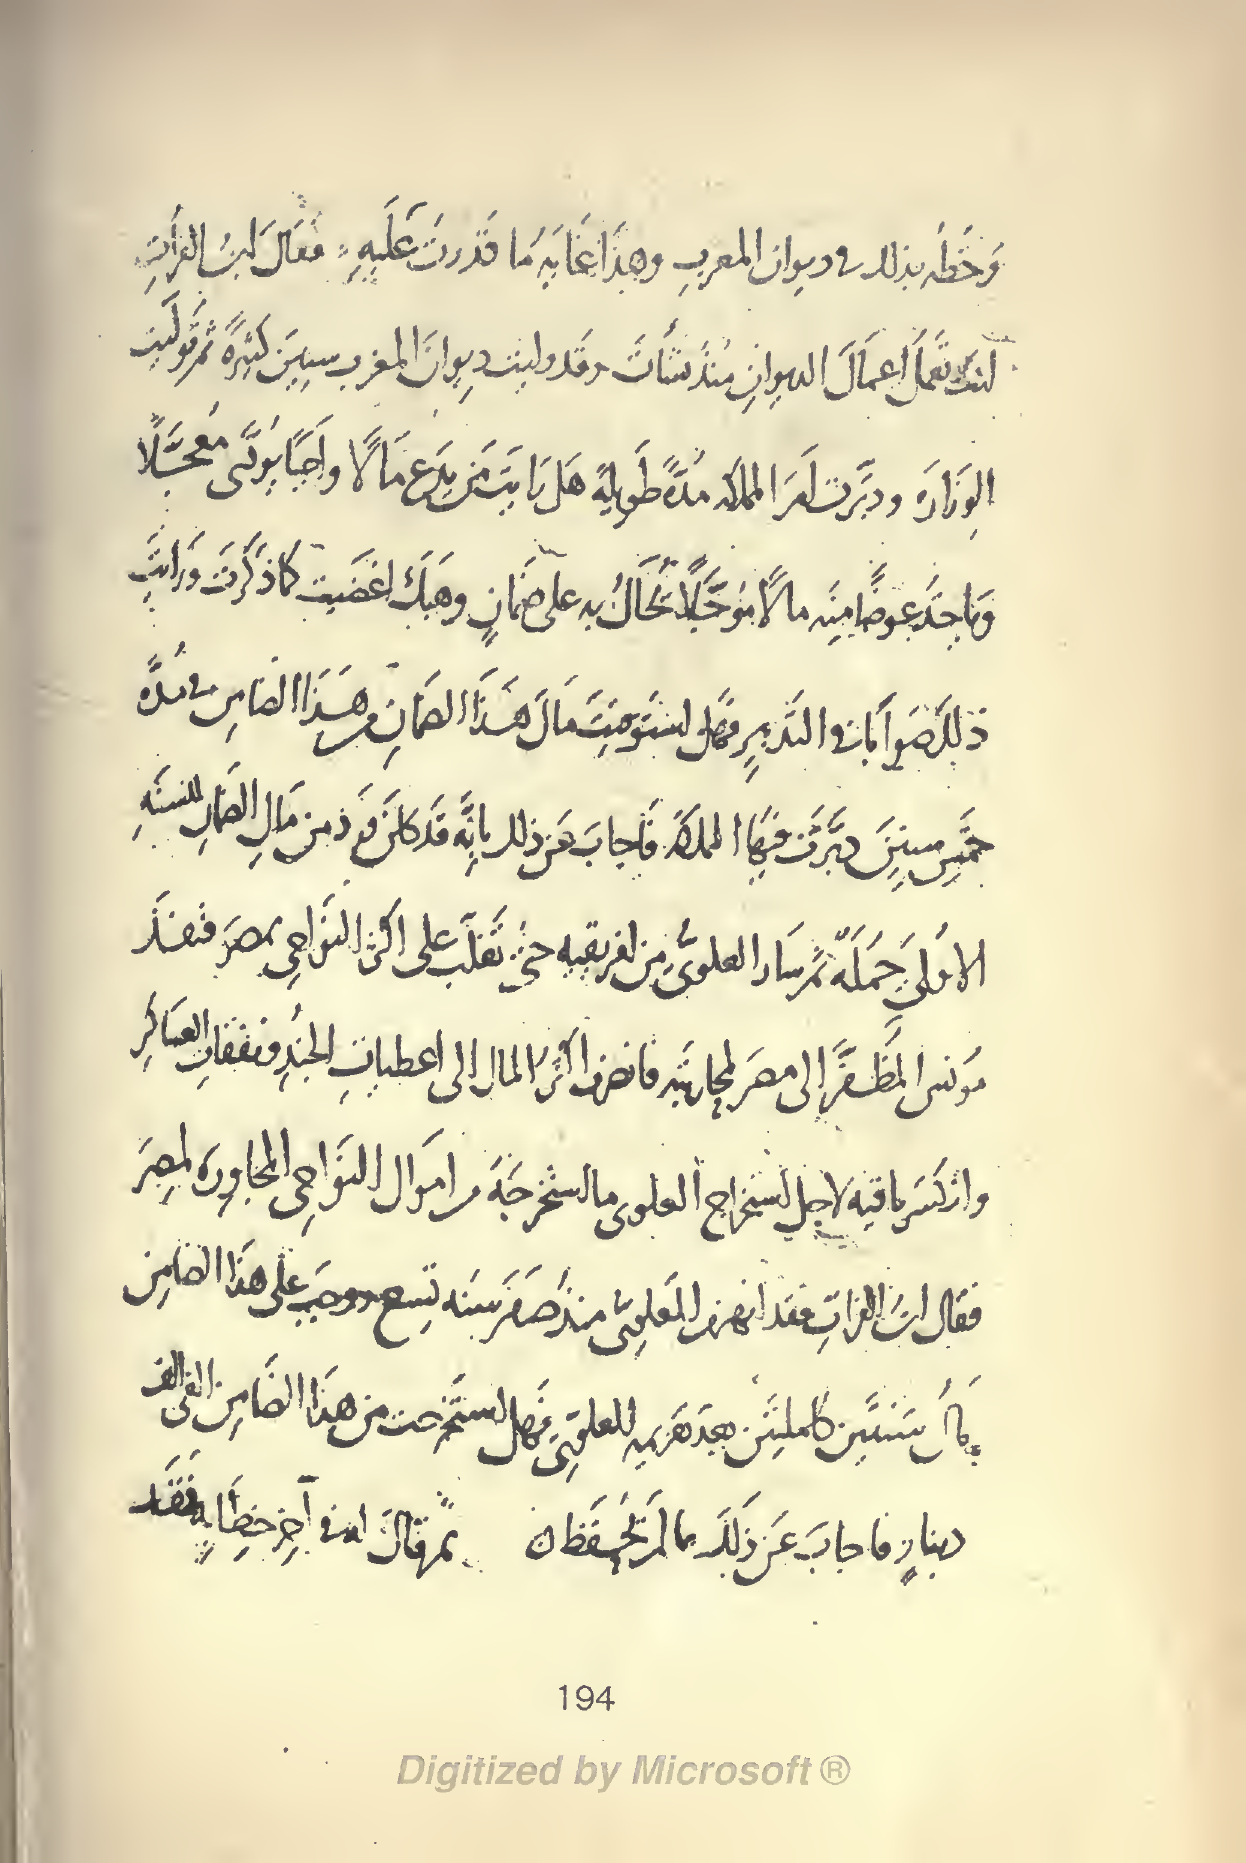 وَخَطُه بذلك في ديوان المغربِ وهذَا غَايَه مَا قَدَرتَ عَلَيهِ فَقَالَ ابنُ الفراتِ
انتَ تعمَل اعمَالَ الديوانِ مُنذُ نشأتَ وقَد وليت ديوانَ المغرب سِنِينَ كثِيرَةً ثم تَولَّيت
الوِزَارَه ودبَّرت امرَ المملكه مُدّةً طَويلةً هَل رَايتَ مَن يَدَع مَالًا واجِبًا يُودَّى مُعجَّلًا
وياخذ عِوضًا مِنه مالًا موَجَّلًا يُحَالُ به على ضَمَانٍ وهَبكَ اغضَيت كما ذكَرتَ ورَايتَ
ذلِكَ صَوابًا في التَدبيرِ فَهل استَوفيتَ مَالَ هَذَا الضمَانِ من هَذَا الضَامِن في مُدَّه
خَمسِ سِنينَ دبَّرتَ فيهَا المملكَه فَاجابَ عَن ذلك بانَّه قد كانَ وَرَد من مَالِ الضمَانِ للسنَهِ
الاولَى جُملَةٌ ثم سَارَ العلوىُّ من افريقيه حتى تغَلَّب على اكثر النَواحِى بمصرَ فنفذَ
مونس المُظَفَّرُ الى مصرَ لمحاربَتِه فانصرف اكثَرُ المال الى اعطياتِ الجُندِ ونفقاتِ العسَاكِرِ
وانكسَر باقيه لاجل استخراج العلوى ما استخرجَهُ من امَوال النَواحِى المجاوِرَه لمِصرَ
فقال ابنُ الفراتِ فقد انهزمَ العَلوِىُّ منذُ صَفَر سَنَه تِسع ووجَبَ على هذَا الضَامِن
مالُ سَنَتَين كاملتَين بعدَ هَزيمهِ العلوِّى فَهل استَخرجت من هذَا الضَامِن الفَى الف
دينارٍ فاجابَ عَن ذَلِكَ بما لم يُحفَظ ن ثم قالَ له في آخِر خِطَابِهِ فَقَد
194
Digitized by Microsoft ®